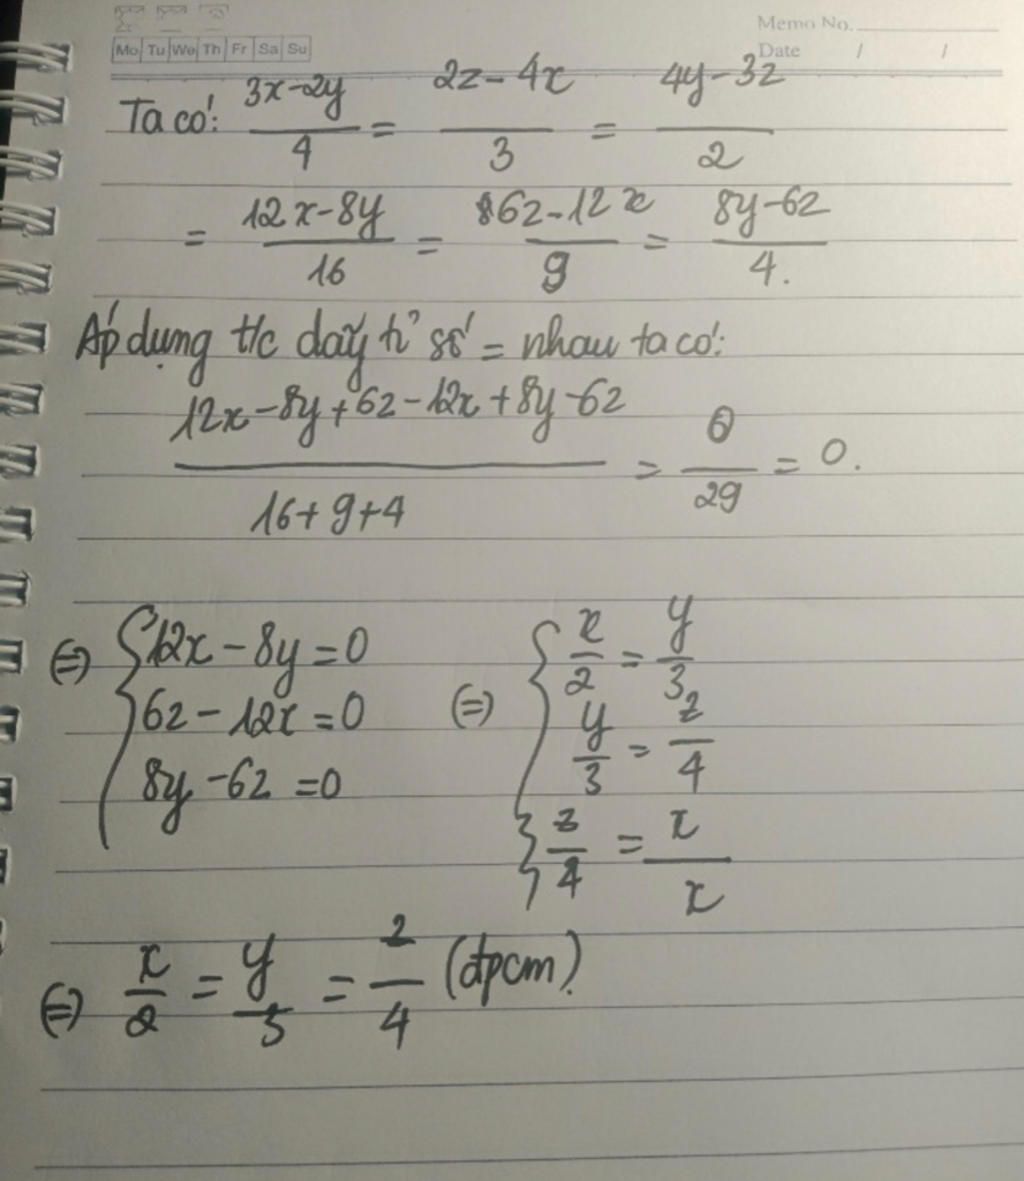 Memo No.
Mo Tu We Th Fr Sa Su
Date / /
Ta có: (3x-2y)/4 = (2z-4x)/3 = (4y-3z)/2
= (12x-8y)/16 = (6z-12x)/9 = (8y-6z)/4.
Áp dụng t/c dãy tỉ số = nhau ta có:
(12x-8y+6z-12x+8y-6z)/(16+9+4) = 0/29 = 0.
⇔ { 12x-8y=0 ⇔ { x/2 = y/3
6z-12x=0 y/3 = z/4
8y-6z=0 z/4 = x/x
⇔ x/2 = y/3 = z/4 (đpcm).